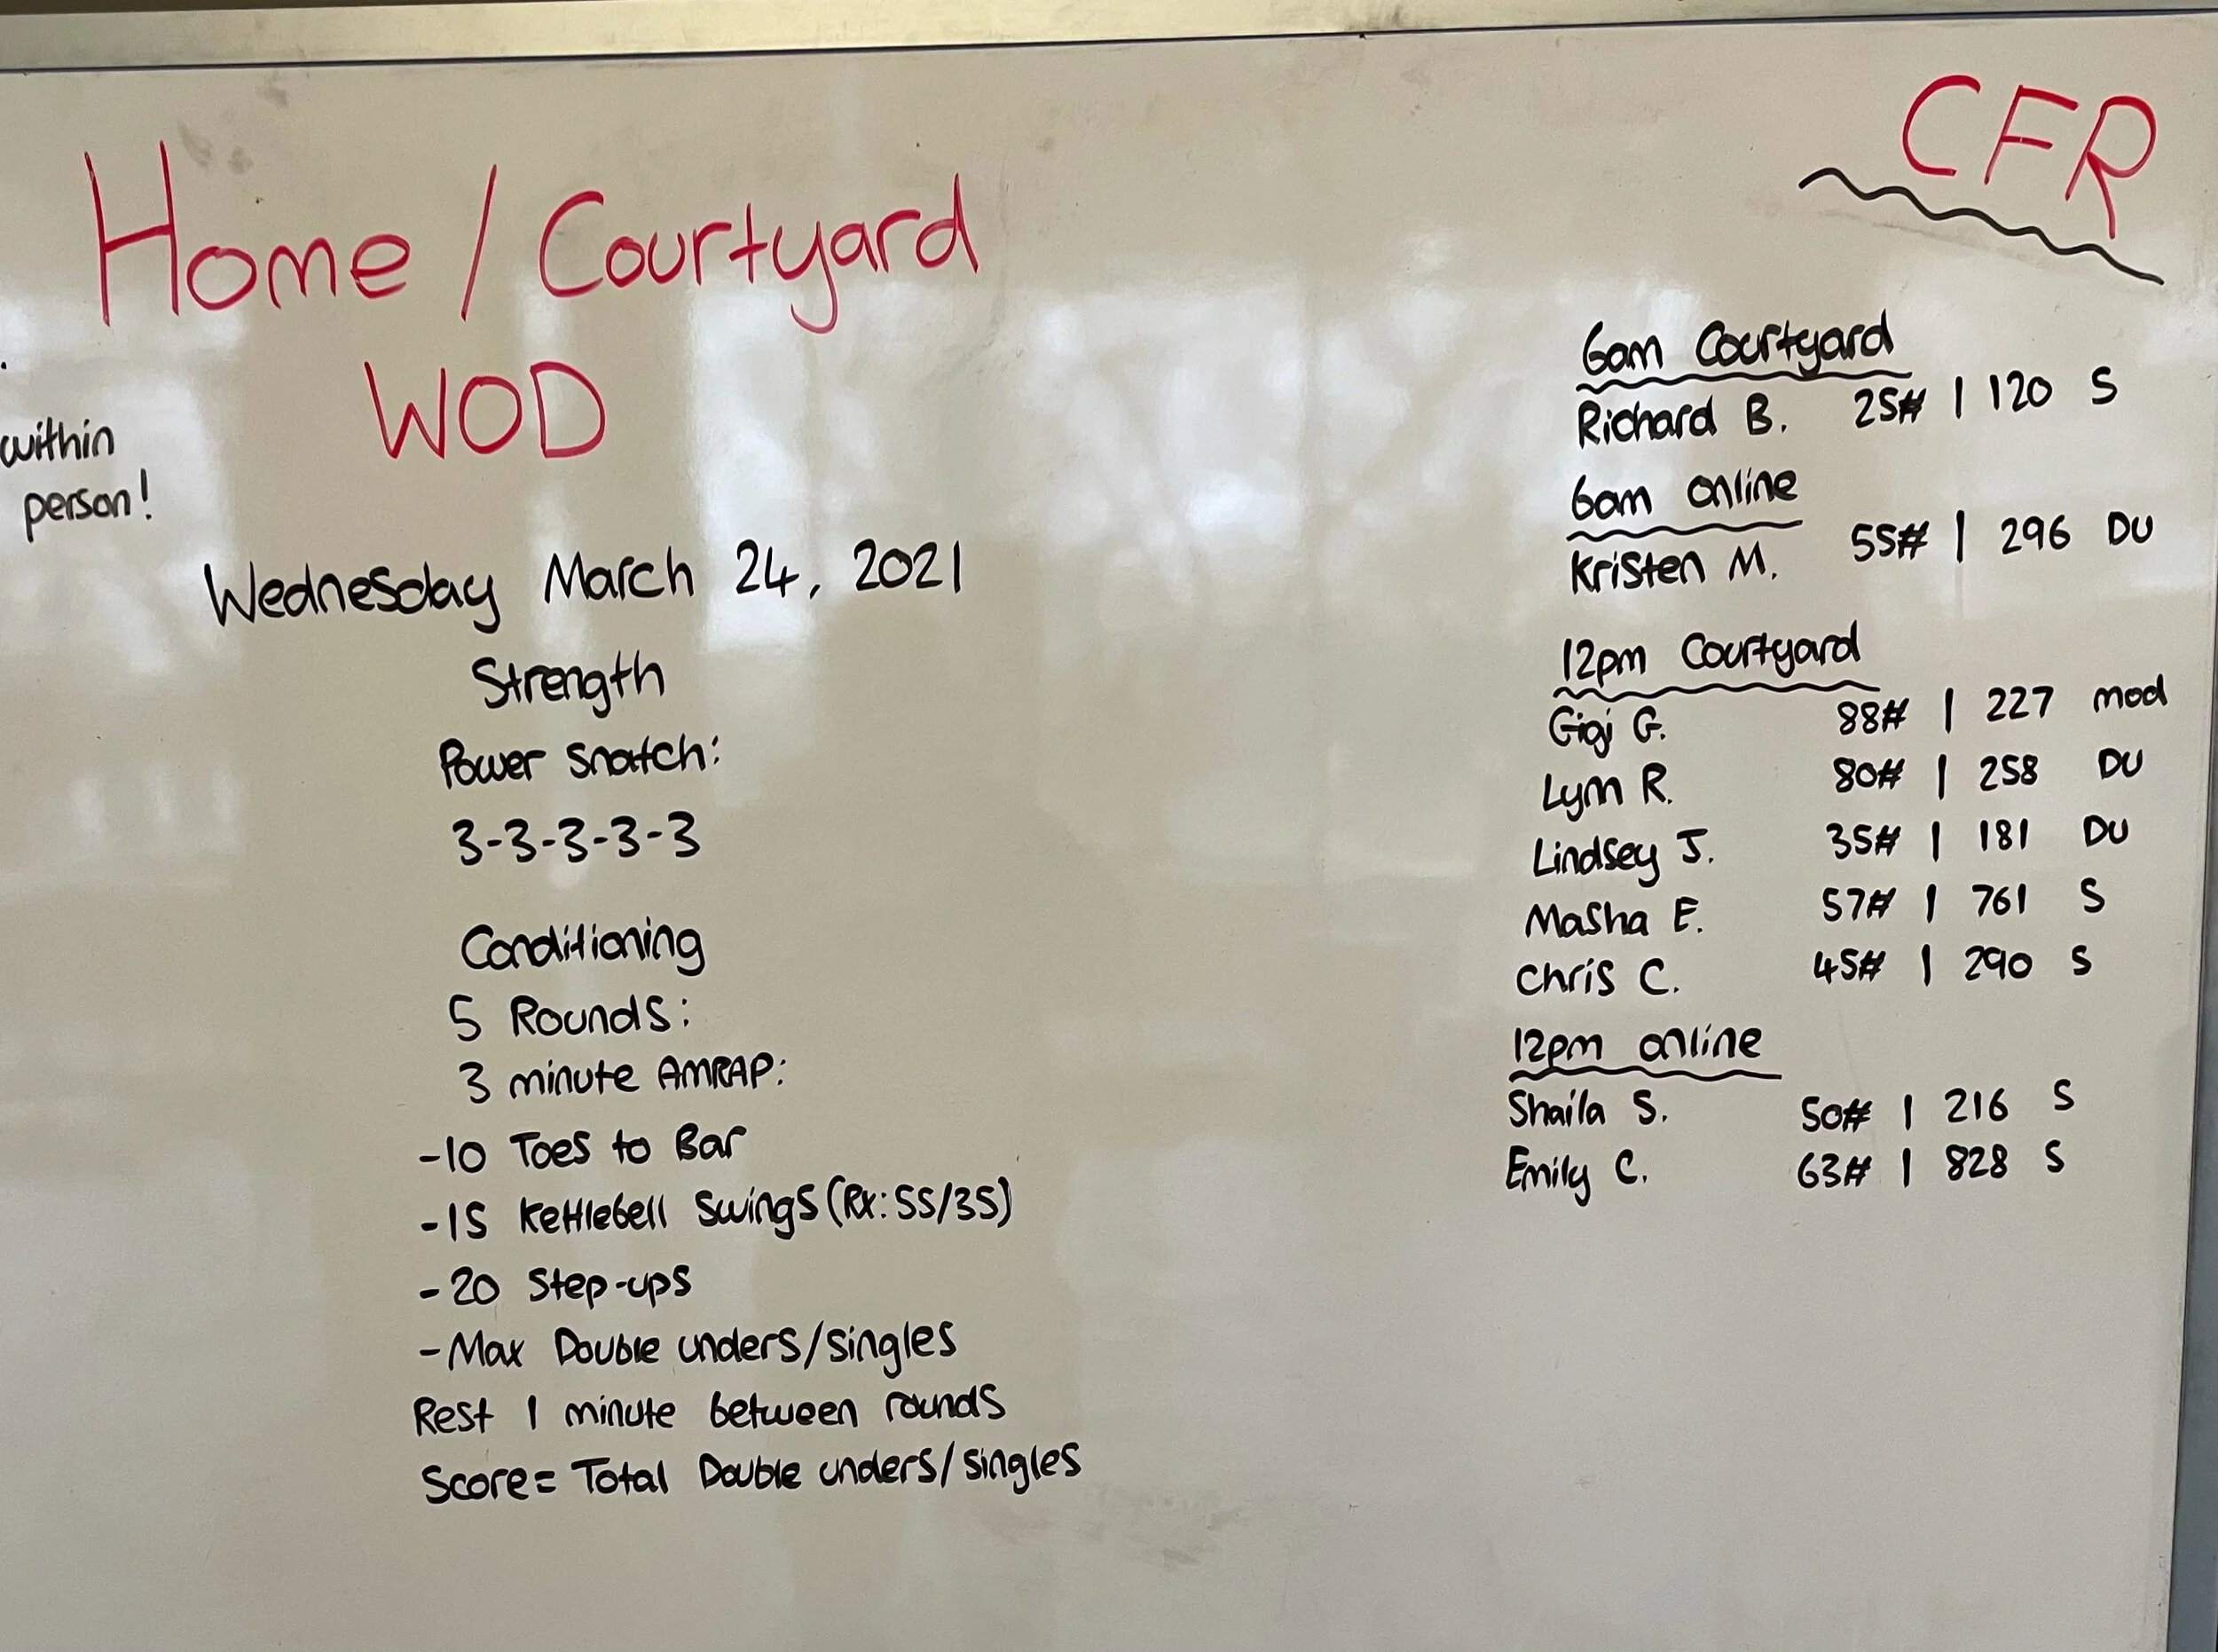 CFR
Home / Courtyard
WOD
within
person!
Wednesday March 24, 2021
Strength
Power Snatch:
3-3-3-3-3
Conditioning
5 Rounds:
3 minute AMRAP:
-10 Toes to Bar
-15 Kettlebell Swings (Rx: 55/35)
-20 Step-ups
-Max Double unders/singles
Rest 1 minute between rounds
Score= Total Double unders/singles
6am Courtyard
Richard B. 25# | 120 S
6am online
Kristen M. 55# | 296 DU
12pm Courtyard
Gigi G. 88# | 227 mod
Lynn R. 80# | 258 DU
Lindsey J. 35# | 181 DU
Masha E. 57# | 761 S
Chris C. 45# | 290 S
12pm online
Shaila S. 50# | 216 S
Emily C. 63# | 828 S